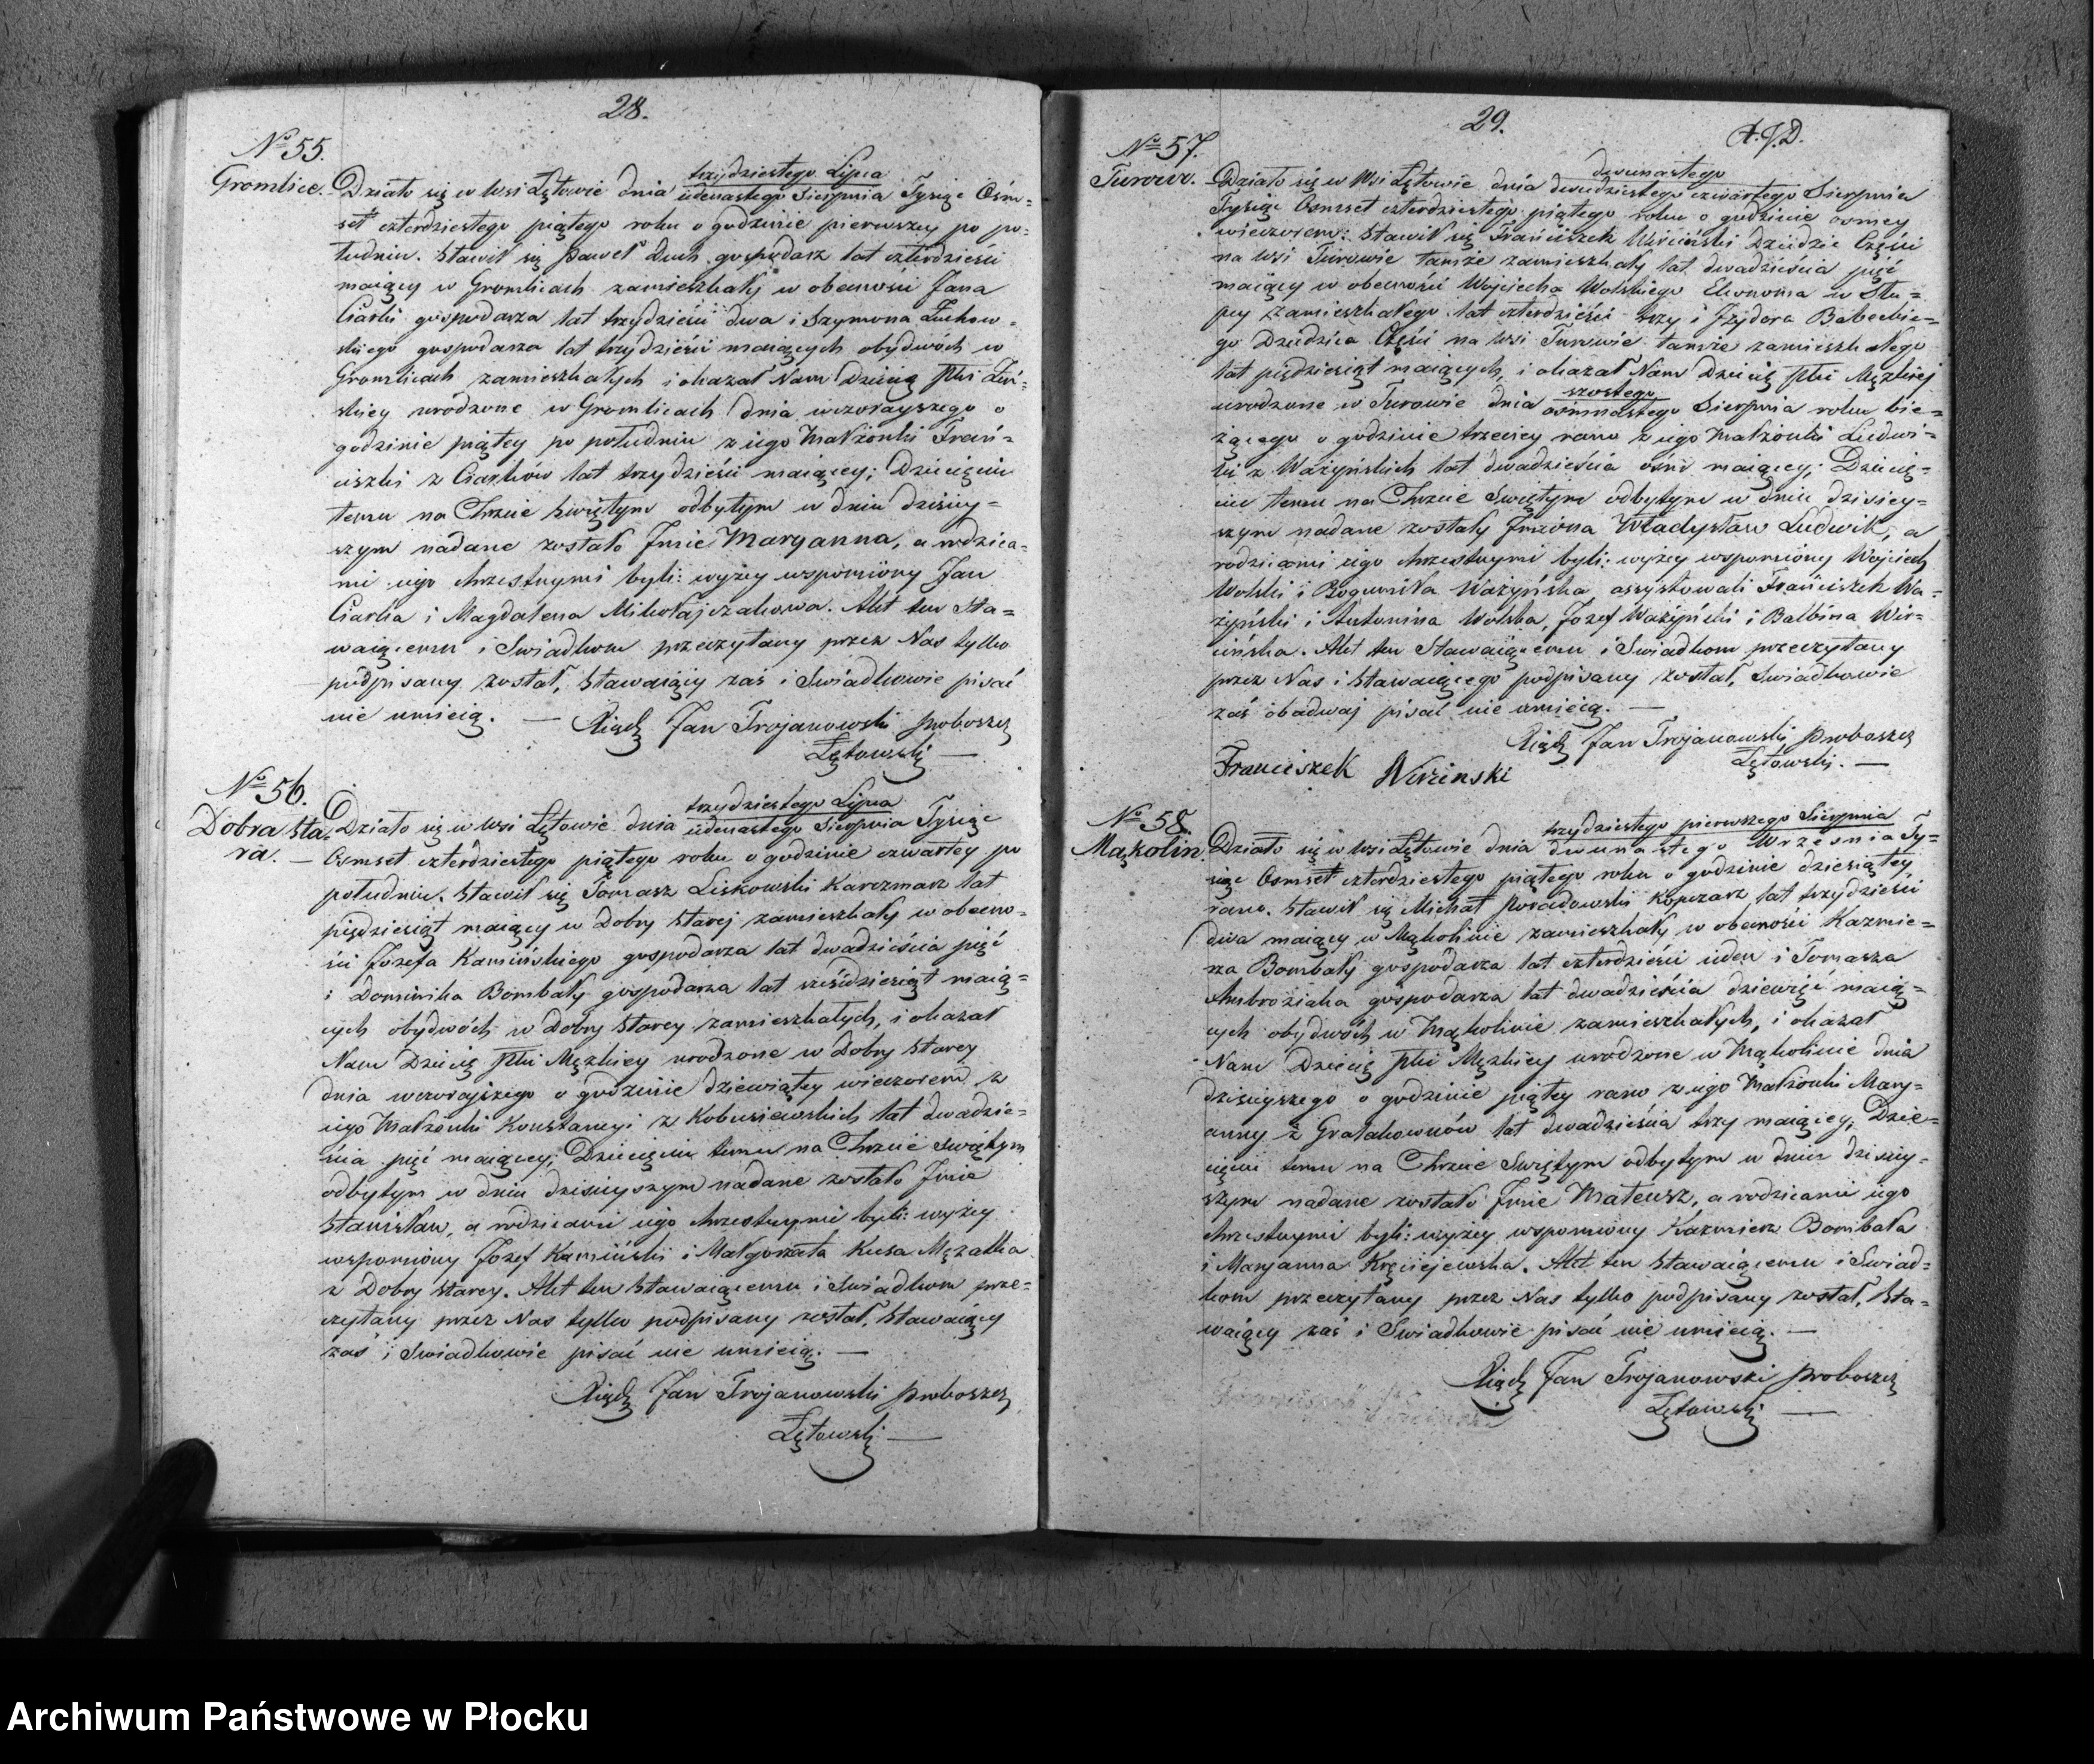 28.
No 55.
Gromlice.
Działo się w Wsi Łętowie dnia trzydziestego Lipca / iedenastego Sierpnia Tysiąc Ośm=
set czterdziestego piątego roku o godzinie pierwszey po po=
łudniu. Stawił się Paweł Duch gospodarz lat czterdzieści
maiący w Gromlicach zamieszkały w obecności Jana
Ciarki gospodarza lat trzydzieści dwa i Szymona Żuchow=
skiego gospodarza lat trzydzieści maiących obydwóch w
Gromlicach zamieszkałych i okazał Nam Dziecię Płci Żeń=
skiey urodzone w Gromlicach dnia wczorayszego o
godzinie piątey po południu z iego Małżonki Fran=
ciszki z Ciarków lat trzydzieści maiącey; Dziecięciu
temu na Chrzcie Świętym odbytym w dniu dzisiey=
szym nadane zostało Imie Maryanna, a rodzica=
mi iego chrzestnymi byli: wyżey wspomniony Jan
Ciarka i Magdalena Mikołajczakowa. Akt ten Sta=
waiącemu i Świadkom przeczytany przez Nas tylko
podpisany został, Stawaiący zaś i Świadkowie pisać
nie umieią. — Xiądz Jan Trojanowski Proboszcz
Łętowski —
No 56.
Dobra Sta=
ra. —
Działo się w Wsi Łętowie dnia trzydziestego Lipca / iedenastego Sierpnia Tysiąc
Osmset czterdziestego piątego roku o godzinie czwartey po
południu. Stawił się Tomasz Liskowski Karczmarz lat
pięćdziesiąt maiący w Dobry Starej zamieszkały w obecno=
ści Józefa Kamińskiego gospodarza lat dwadzieścia pięć
i Dominika Bombały gospodarza lat sześćdziesiąt maią=
cych obydwóch w Dobry Starey zamieszkałych, i okazał
Nam Dziecię Płci Męzkiey urodzone w Dobry Starey
dnia wczorajszego o godzinie dziewiątey wieczorem z
iego Małżonki Konstancyi z Kobusiewskich lat dwadzie=
ścia pięć maiącey; Dziecięciu temu na Chrzcie Świętym
odbytym w dniu dzisieyszym nadane zostało Imie
Stanisław, a rodzicami iego chrzestnymi byli: wyżey
wspomniony Józef Kamiński i Małgorzata Kusa Mężatka
z Dobry Starey. Akt ten Stawaiącemu i Świadkom prze=
czytany przez Nas tylko podpisany został, Stawaiący
zaś i Świadkowie pisać nie umieią. —
Xiądz Jan Trojanowski Proboszcz
Łętowski —
29.
No 57.
Turowo.
Działo się w Wsi Łętowie dnia dwunastego / dwudziestego czwartego Sierpnia
Tysiąc Osmset czterdziestego piątego roku o godzinie osmey
wieczorem: Stawił się Franciszek Wirciński Dziedzic Części
na Wsi Turowie tamże zamieszkały lat dwadzieścia pięć
maiący w obecności Wojciecha Wolskiego Ekonoma w Słu=
pcy zamieszkałego lat czterdzieści trzy i Izydora Babeckie=
go Dziedzica Części na Wsi Turowie tamże zamieszkałego
lat pięćdziesiąt maiących, i okazał Nam Dziecię Płci Męzkiej
urodzone w Turowie dnia szostego / osmnastego Sierpnia roku bie=
żącego o godzinie trzeciey rano z iego Małżonki Ludwi=
ki z Ważyńskich lat dwadzieścia ośm maiącey; Dziecię=
ciu temu na Chrzcie Świętym odbytym w dniu dzisiey=
szym nadane zostały Imiona Władysław Ludwik, a
rodzicami iego chrzestnymi byli: wyżey wspomniony Wojciech
Wolski i Bogumiła Ważyńska, assystowali Franciszek Wa=
żyński i Antonina Wolska, Józef Ważyński i Balbina Wir=
cińska. Akt ten Stawaiącemu i Świadkom przeczytany
przez Nas i Stawaiącego podpisany został, Świadkowie
zaś obadwaj pisać nie umieią. —
Xiądz Jan Trojanowski Proboszcz
Łętowski. —
Franciszek Wircinski
No 58.
Mąkolin.
Działo się w Wsi Łętowie dnia trzydziestego pierwszego Sierpnia / dwunastego Września Ty=
siąc Osmset czterdziestego piątego roku o godzinie dziesiątey
rano. Stawił się Michał Poradowski Kopczarz lat trzydzieści
dwa maiący w Mąkolinie zamieszkały w obecności Kazmie=
rza Bombały gospodarza lat czterdzieści ieden i Tomasza
Ambroziaka gospodarza lat dwadzieścia dziewięć maią=
cych obydwóch w Mąkolinie zamieszkałych, i okazał
Nam Dziecię Płci Męzkiey urodzone w Mąkolinie dnia
dzisieyszego o godzinie piątey rano z iego Małżonki Mary=
anny z Gralakownów lat dwadzieścia trzy maiącey; Dzie=
cięciu temu na Chrzcie Świętym odbytym w dniu dzisiey=
szym nadane zostało Imie Mateusz, a rodzicami iego
chrzestnymi byli: wyżey wspomniony Kazmierz Bombała
i Maryanna Kręciejewska. Akt ten Stawaiącemu i Świad=
kom przeczytany przez Nas tylko podpisany został, Sta=
waiący zaś i Świadkowie pisać nie umieią. —
Xiądz Jan Trojanowski Proboszcz
Łętowski —
Archiwum Państwowe w Płocku